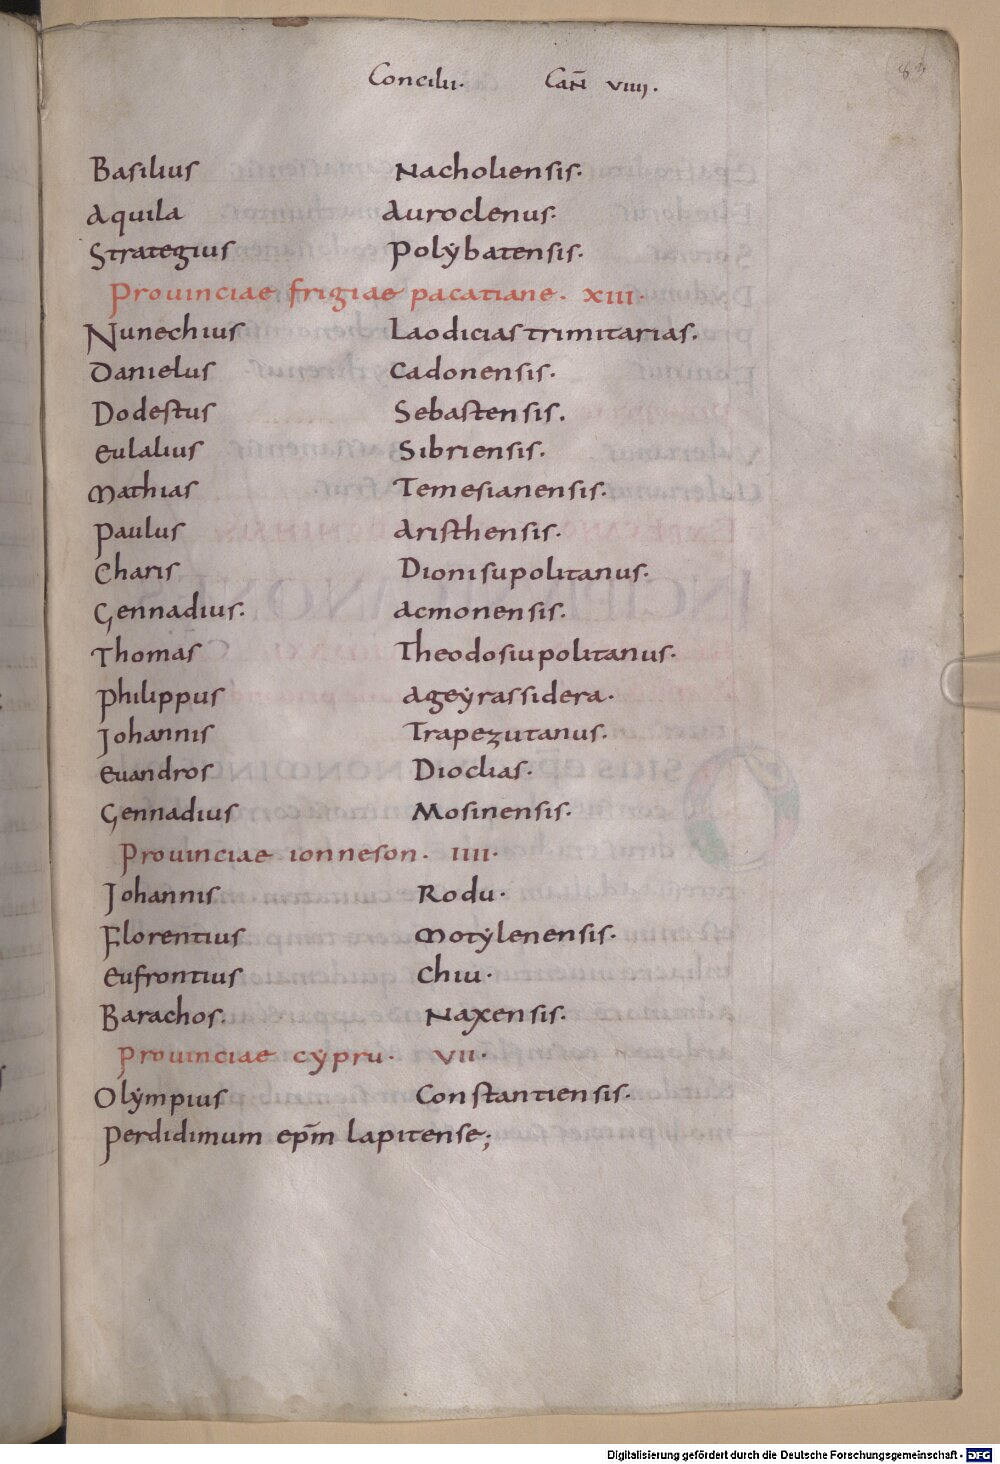 Concilii. CaN̄ VIIII.
Basilius Nacholiensis.
Aquila Auroclenus.
Strategius Polẏbatensis.
Prouinciae frigiae pacatiane. XIII.
Nunechius Laodicias trimitarias.
Danielus Cadonensis.
Dodestus Sebastensis.
Eulalius Sibriensis.
Mathias Temesianensis.
Paulus Aristhensis.
Charis Dionisupolitanus.
Gennadius. Acmonensis.
Thomas Theodosiupolitanus.
Philippus Ageẏrassidera.
Johannis Trapezutanus.
Euandros Dioclias.
Gennadius Mosinensis.
Prouinciae ionneson. IIII.
Johannis Rodu.
Florentius Motẏlenensis.
Eufrontius Chiu.
Barachos. Naxensis.
Prouinciae cẏpru. VII.
Olẏmpius Constantiensis.
Perdidimum ep̄m lapitense;
Digitalisierung gefördert durch die Deutsche Forschungsgemeinschaft - DFG